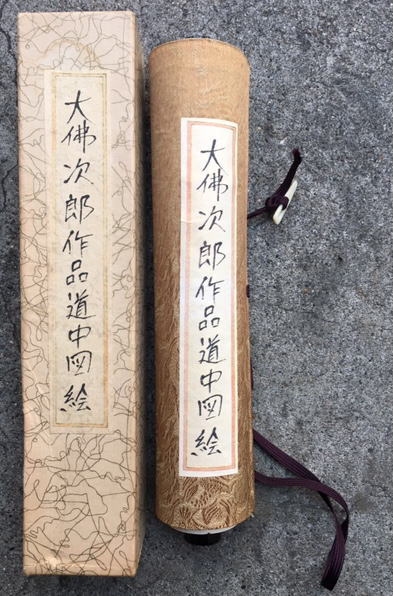 大佛次郎作品道中図絵
大佛次郎作品道中図絵